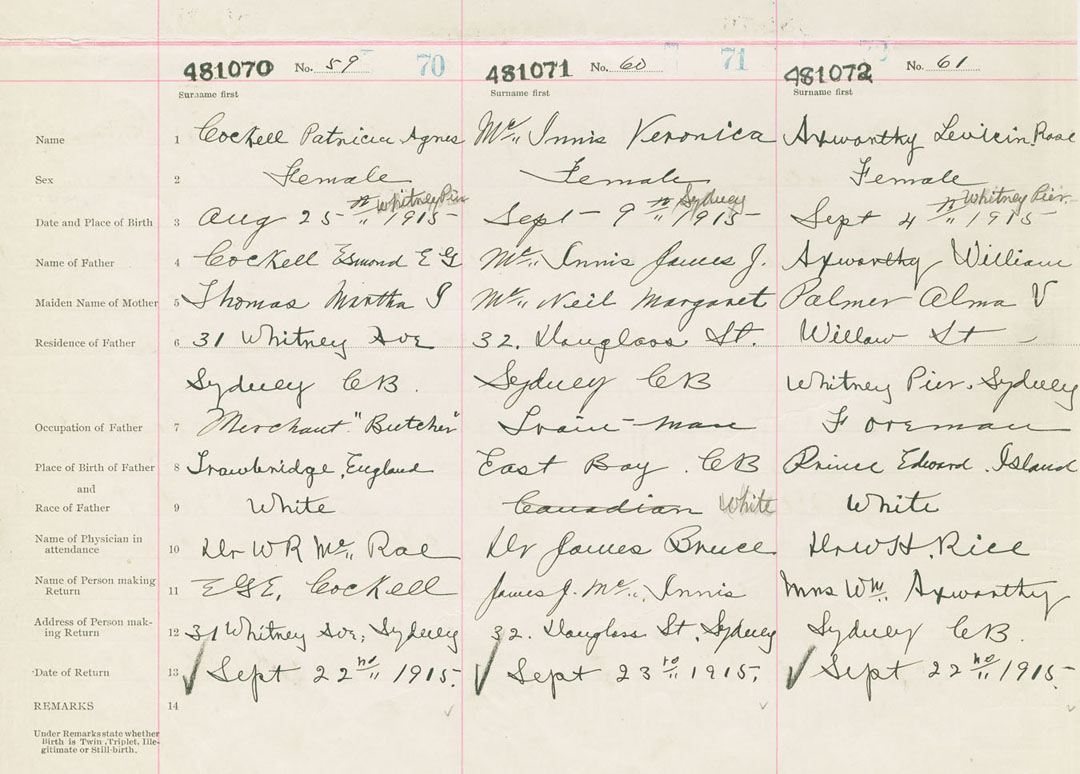 481070 No. 59 70 481071 No. 60 71 481072 No. 61
Surname first Surname first Surname first
Name 1 Cockell Patricia Agnes Mc Innis Veronica Axworthy Rose
Sex 2 Female Female Female
Whitney Pier Sydney Whitney Pier
Date and Place of Birth 3 Aug 25th 1915 Sept 9th 1915 Sept 4th 1915
Name of Father 4 Cockell Esmond E G Mc Innis James J. Axworthy William
Maiden Name of Mother 5 Thomas Martha Mc Neil Margaret Palmer Alma V
Residence of Father 6 31 Whitney Ave 32. Douglass St. Willow St
Sydney CB. Sydney CB Whitney Pier. Sydney
Occupation of Father 7 Merchant "Butcher" Train-man Foreman
Place of Birth of Father 8 Trowbridge, England East Bay. CB Prince Edward Island
and
Race of Father 9 White Canadian White White
Name of Physician in
attendance 10 Dr W R Mc Rae Dr James Bruce Dr W H. Rice
Name of Person making
Return 11 E G E. Cockell James J. Mc Innis Mrs Wm. Axworthy
Address of Person mak-
ing Return 12 31 Whitney Ave, Sydney 32. Douglass St, Sydney Sydney CB.
Date of Return 13 Sept 22nd 1915. Sept 23rd 1915. Sept 22nd 1915.
REMARKS 14
Under Remarks state whether
Birth is Twin, Triplet, Ille-
gitimate or Still-birth.